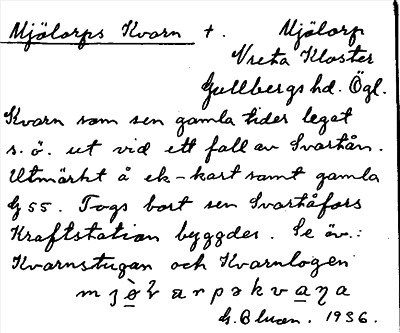 Mjölorps Kvarn +. Mjölorp
Vreta Kloster
Gullbergs hd. Ögl.
Kvarn som sen gamla tider legat
s.ö. ut vid ett fall av Svartån.
Utmärkt å ek-kart samt gamla
G 55. Togs bort sen Svartåfors
Kraftstation byggdes. Se äv.:
Kvarnstugan och Kvarnlogen
G. Bluan. 1936.